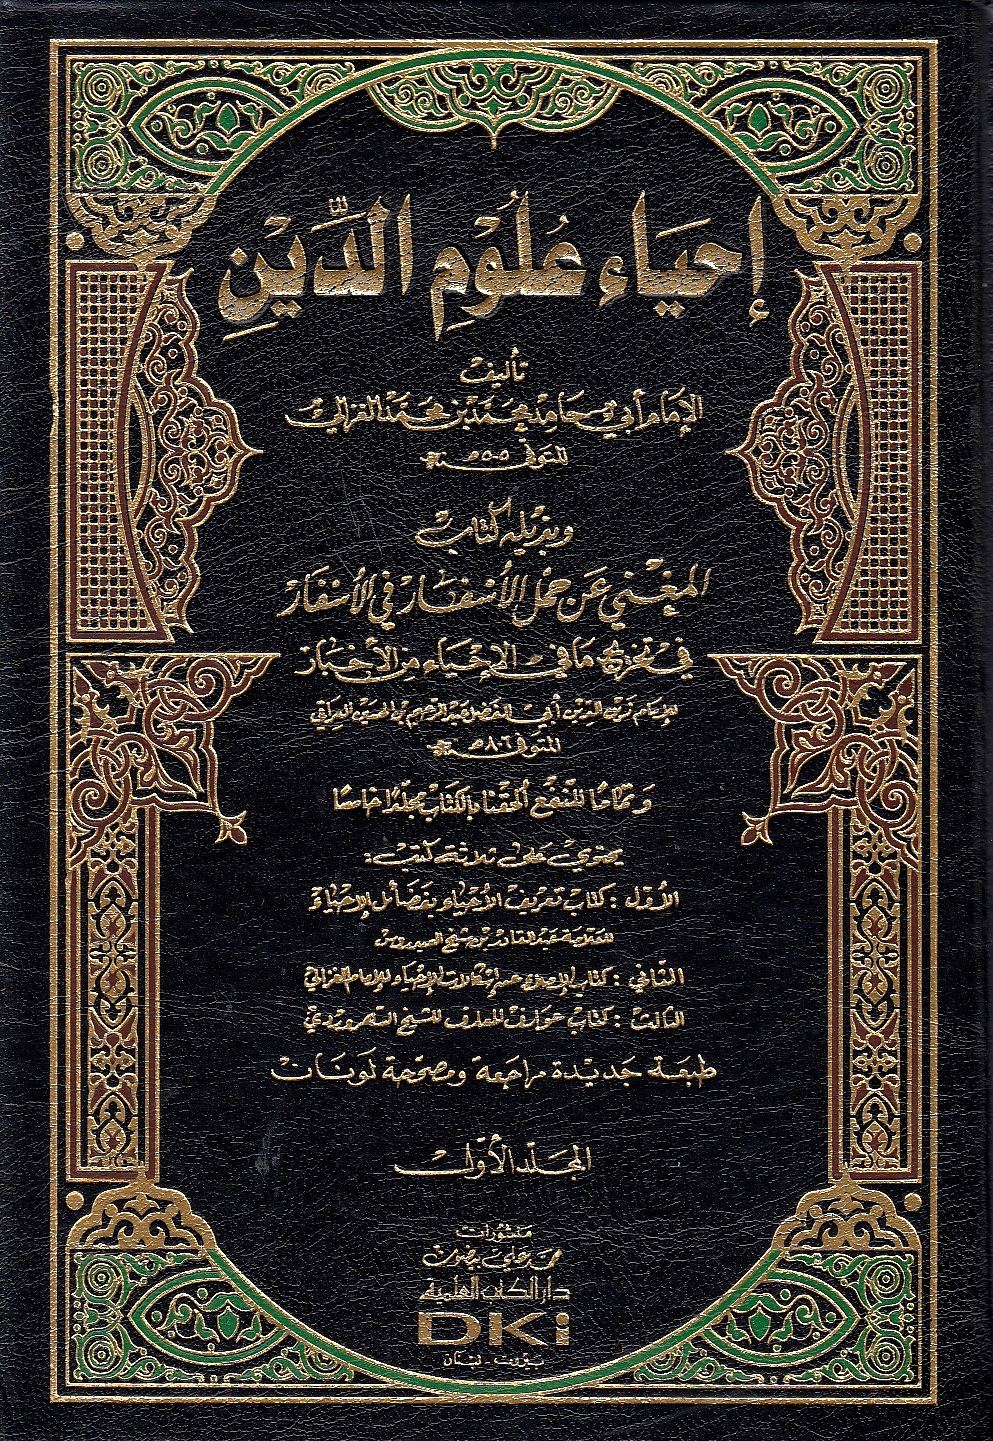 إحياء علوم الدين
تأليف
الإمام أبي حامد محمد بن محمد الغزالي
المتوفى ٥٠٥ هـ
وبذيله كتاب
المغني عن حمل الأسفار في الأسفار
في تخريج ما في الإحياء من الأخبار
للإمام زين الدين أبي الفضل عبد الرحيم بن الحسين العراقي
المتوفى ٨٠٦ هـ
وتمامًا للنفع ألحقنا بالكتاب مجلدًا خامسًا
يحتوي على ثلاثة كتب:
الأول: كتاب تعريف الأحياء بفضائل الإحياء
للعلامة عبد القادر بن شيخ العيدروس
الثاني: كتاب الإملاء عن إشكالات الإحياء للإمام الغزالي
الثالث: كتاب عوارف المعارف للشيخ السهروردي
طبعة جديدة مراجعة ومصححة لونان
المجلد الأول
منشورات
محمد علي بيضون
دار الكتب العلمية
DKi
بيروت - لبنان